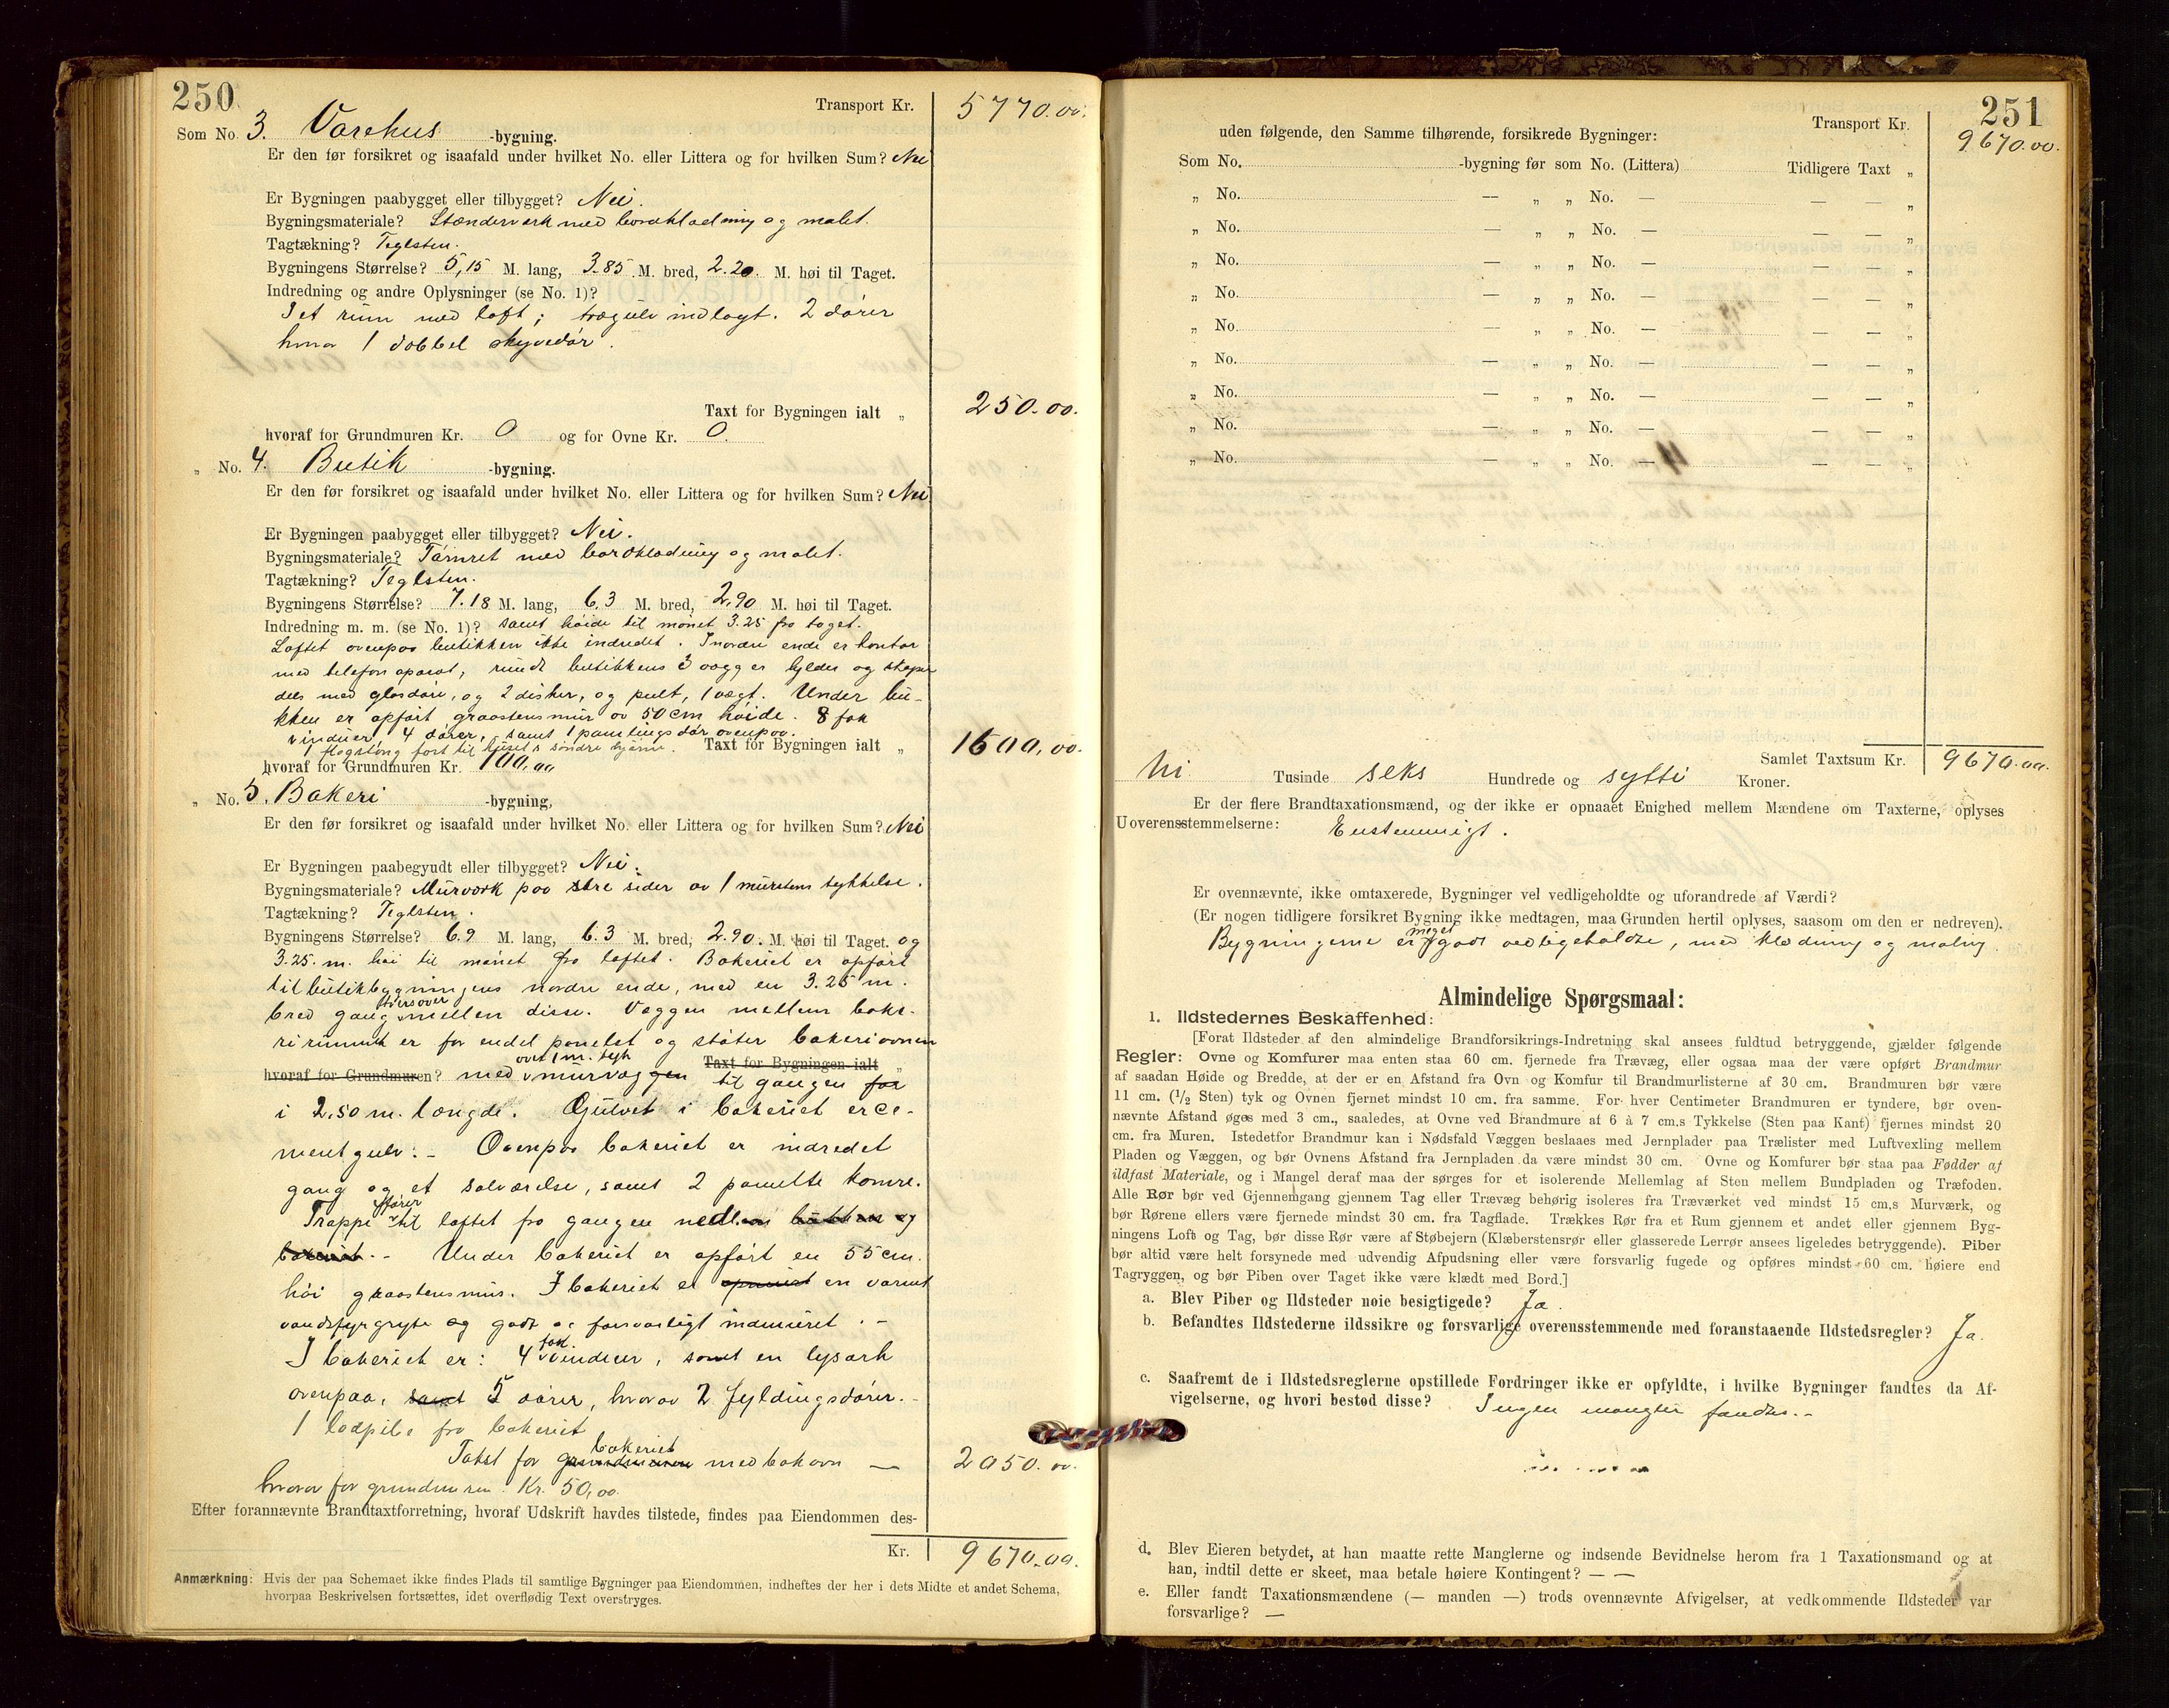 250
Transport Kr. 5770.00.
Som No 3. Varehus -bygning.
Er den før forsikret og isaafald under hvilket No. eller Littera og for hvilken Sum? Nei
Er Bygningen paabygget eller tilbygget? Nei.
Bygningsmateriale? Stænderverk med bordklædning og malet.
Tagtækning? Teglsten.
Bygningens Størrelse? 5,15 M. lang, 3.85 M. bred, 2.20. M. høi til Taget.
Indredning og andre Oplysninger (se No. 1)?
I et rum med loft; trægulv indlagt. 2 dører
hvorav 1 dobbel skyvedør.
Taxt for Bygningen ialt „ 250.00.
hvoraf for Grundmuren Kr. 0 og for Ovne Kr. 0.
„ No. 4. Butik -bygning.
Er den før forsikret og isaafald under hvilket No. eller Littera og for hvilken Sum? Nei
Er Bygningen paabygget eller tilbygget? Nei.
Bygningsmateriale? Tømret med bordklædning og malet.
Tagtækning? Teglsten.
Bygningens Størrelse? 7.18 M. lang, 6.3 M. bred, 2,90 M. høi til Taget.
Indredning m. m. (se No. 1)? samt høide til mønet 3.25 fra taget.
Loftet ovenpaa butikken ikke indredet. I nordre ende er kontor
med telefon aparat, rundt butikkens 3 vægger hylder og skaper
dels med glasdøre, og 2 disker, og pult, 1 vægt. Under bu-
kken er opført graastensmur av 50 cm høide. 8 fak
vinduer, 4 dører, samt 1 dør ovenpaa.
1 flagstang ført til husets søndre hjørne. Taxt for Bygningen ialt „ 1600,00.
hvoraf for Grundmuren Kr. 100,00
„ No. 5. Bakeri -bygning,
Er den før forsikret og isaafald under hvilket No. eller Littera og for hvilken Sum? Nei
Er Bygningen paabegyndt eller tilbygget? Nei.
Bygningsmateriale? Murverk paa sider av 1 murstens tykkelse.
Tagtækning? Teglsten.
Bygningens Størrelse? 6.9 M. lang, 6.3 M. bred, 2.90. M. høi til Taget. og
3.25. m. høi til mønet fra loftet. Bakeriet er opført
til butikbygningens nordre ende, med en 3.25 m.
bred gang tversover mellem disse. Væggen mellem bake-
rirummet er for endel panelet og støter bakeriovnen
hvoraf for Grundmuren? med over 1 m. tyk murvæggen Taxt for Bygningen ialt „ til gangen for
i 2,50 m. længde. Gulvet i bakeriet er ce-
mentgulv:- Ovenpaa bakeriet er indredet
gang og et soværelse, samt 2 panelte komre.
Trappe fører til loftet fra gangen mellem butikken og
bakeriet.- Under bakeriet er opført en 55 cm.
høi graastensmur. I bakeriet er en varmt
vandsfyrgryte og godt og forsvarligt indmuret.-
I bakeriet er: 4 fak. vinduer, samt en lysark
ovenpaa, samt 5 dører, hvorav 2 fyldingsdører.-
1 lodpibe fra bakeriet
Takst for grundmuren bakeriet med bakovn — 2050.00.
hvorav for grundmuren. Kr. 50,00.
Efter forannævnte Brandtaxtforretning, hvoraf Udskrift havdes tilstede, findes paa Eiendommen des-
Kr. 9670.00.
Anmærkning: Hvis der paa Schemaet ikke findes Plads til samtlige Bygninger paa Eiendommen, indheftes der her i dets Midte et andet Schema,
hvorpaa Beskrivelsen fortsættes, idet overflødig Text overstryges.
251
Transport Kr. 9670.00.
uden følgende, den Samme tilhørende, forsikrede Bygninger:
Som No. -bygning før som No. (Littera) Tidligere Taxt „
„ No. — „ „ No. — — — „
„ No. — „ „ No. — — — „
„ No. — „ „ No. — — — „
„ No. — „ „ No. — — — „
„ No. — „ „ No. — — — „
„ No. — „ „ No. — — — „
„ No. — „ „ No. — — — „
„ No. — „ „ No. — — — „
„ No. — „ „ No. — — — „
Samlet Taxtsum Kr. 9670.00.
Ni Tusinde seks Hundrede og sytti Kroner.
Er der flere Brandtaxationsmænd, og der ikke er opnaaet Enighed mellem Mændene om Taxterne, oplyses
Uoverensstemmelserne: Enstemmigt.
Er ovennævnte, ikke omtaxerede, Bygninger vel vedligeholdte og uforandrede af Værdi?
(Er nogen tidligere forsikret Bygning ikke medtagen, maa Grunden hertil oplyses, saasom om den er nedreven).
Bygningerne er meget godt vedligeholdte, med klædning og maling.
Almindelige Spørgsmaal:
1. Ildstedernes Beskaffenhed:
[Forat Ildsteder af den almindelige Brandforsikrings-Indretning skal ansees fuldtud betryggende, gjælder følgende
Regler: Ovne og Komfurer maa enten staa 60 cm. fjernede fra Trævæg, eller ogsaa maa der være opført Brandmur
af saadan Høide og Bredde, at der er en Afstand fra Ovn og Komfur til Brandmurlisterne af 30 cm. Brandmuren bør være
11 cm. (1/2 Sten) tyk og Ovnen fjernet mindst 10 cm. fra samme. For hver Centimeter Brandmuren er tyndere, bør oven-
nævnte Afstand øges med 3 cm., saaledes, at Ovne ved Brandmure af 6 à 7 cm.s Tykkelse (Sten paa Kant) fjernes mindst 20
cm. fra Muren. Istedetfor Brandmur kan i Nødsfald Væggen beslaaes med Jernplader paa Trælister med Luftvexling mellem
Pladen og Væggen, og bør Ovnens Afstand fra Jernpladen da være mindst 30 cm. Ovne og Komfurer bør staa paa Fødder af
ildfast Materiale, og i Mangel deraf maa der sørges for et isolerende Mellemlag af Sten mellem Bundpladen og Træfoden.
Alle Rør bør ved Gjennemgang gjennem Tag eller Trævæg behørig isoleres fra Træværket ved mindst 15 cm.s Murværk, og
bør Rørene ellers være fjernede mindst 30 cm. fra Tagflade. Trækkes Rør fra et Rum gjennem et andet eller gjennem Byg-
ningens Loft og Tag, bør disse Rør være af Støbejern (Klæberstensrør eller glasserede Lerrør ansees ligeledes betryggende). Piber
bør altid være helt forsynede med udvendig Afpudsning eller være forsvarlig fugede og opføres mindst 60 cm. høiere end
Tagryggen, og bør Piben over Taget ikke være klædt med Bord.]
a. Blev Piber og Ildsteder nøie besigtigede? Ja.
b. Befandtes Ildstederne ildssikre og forsvarlige overensstemmende med foranstaaende Ildstedsregler? Ja.
c. Saafremt de i Ildstedsreglerne opstillede Fordringer ikke er opfyldte, i hvilke Bygninger fandtes da Af-
vigelserne, og hvori bestod disse? Ingen mangler fandtes.-
d. Blev Eieren betydet, at han maatte rette Manglerne og indsende Bevidnelse herom fra 1 Taxationsmand og at
han, indtil dette er skeet, maa betale høiere Kontingent? — —
e. Eller fandt Taxationsmændene (— manden —) trods ovennævnte Afvigelser, at vedkommende Ildsteder var
forsvarlige? —